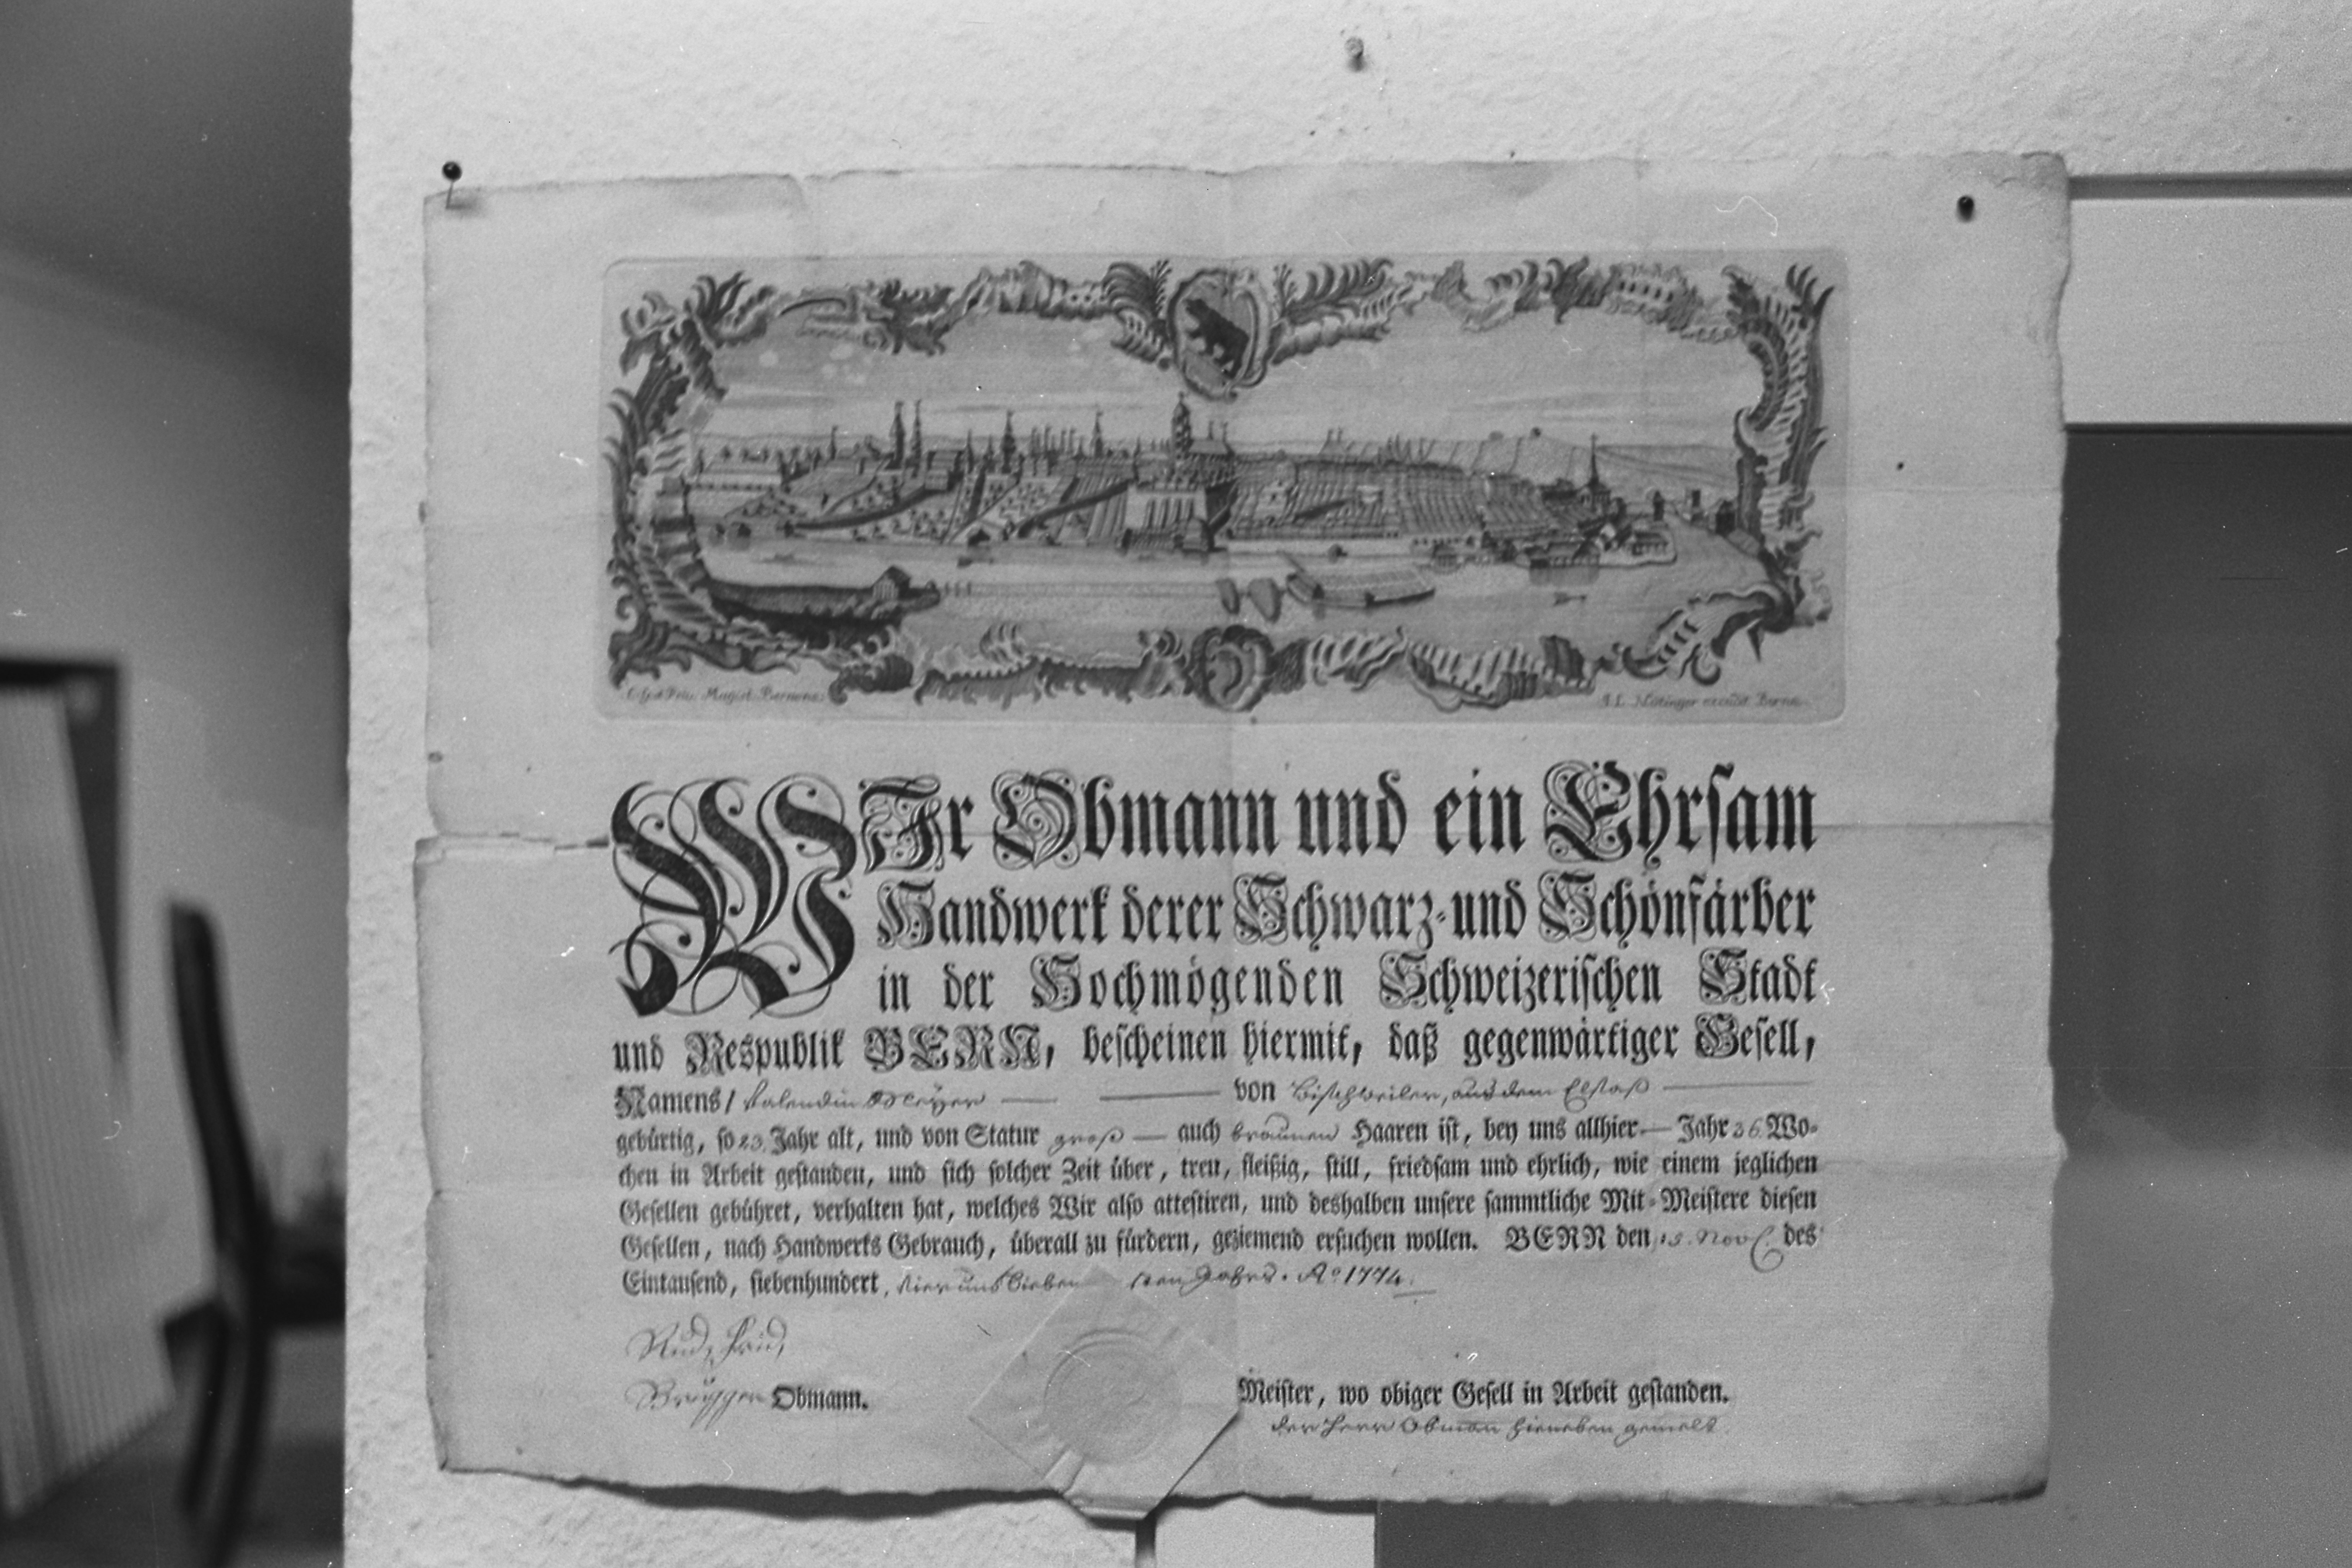 Magist. Bernens.
J. L. Nötinger excudit Bernæ
WIr Obmann und ein Ehrsam
Handwerk derer Schwarz- und Schönfärber
in der Hochmögenden Schweizerischen Stadt
und Respublik BERN, bescheinen hiermit, daß gegenwärtiger Gesell,
Namens / Valendin Meÿer von Bischweiler, aus dem Elsaß
gebürtig, so 23. Jahr alt, und von Statur groß auch braunen Haaren ist, bey uns allhier Jahr 36. Wo-
chen in Arbeit gestanden, und sich solcher Zeit über, treu, fleißig, still, friedsam und ehrlich, wie einem jeglichen
Gesellen gebühret, verhalten hat, welches Wir also attestiren, und deshalben unsere sammtliche Mit-Meistere diesen
Gesellen, nach Handwerks Gebrauch, überall zu fürdern, geziemend ersuchen wollen. BERN den 13. Nov. des
Eintausend, siebenhundert, vier und sieben sten Jahrs. Aº 1774.
Rud. Frid.
Brügger Obmann.
Meister, wo obiger Gesell in Arbeit gestanden.
der Herr Obman hieneben gemelt